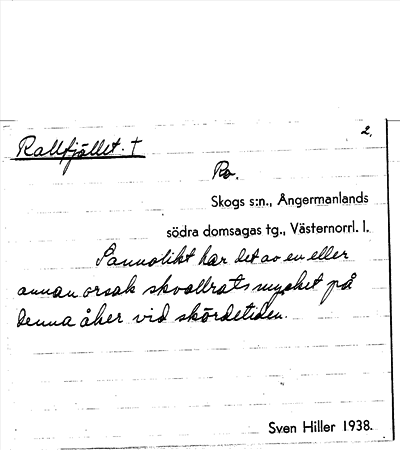 2.
Rallfjöllet. †
Ro.
Skogs s:n., Ångermanlands
södra domsagas tg., Västernorrl. l.
Sannolikt har det av en eller
annan orsak skvallrats mycket på
denna åker vid skördetiden.
Sven Hiller 1938.